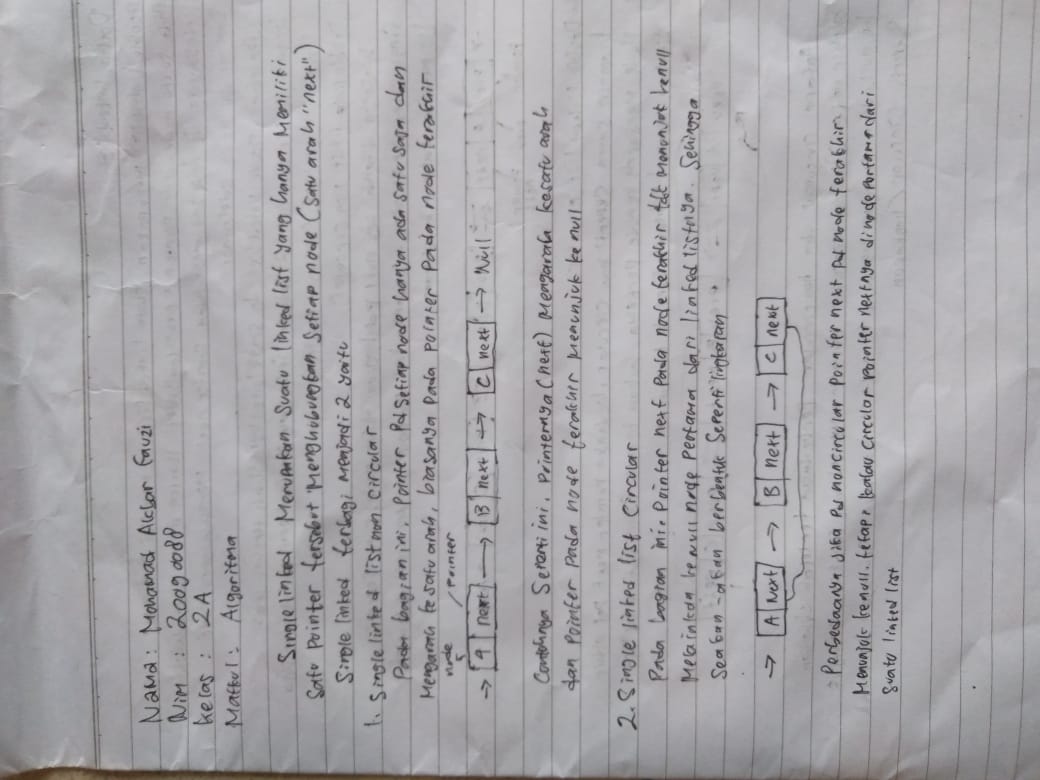 Nama : Mohamad Akbar Fauzi
Nim : 20090088
Kelas : 2A
Matkul : Algoritma
Single linked Merupakan Suatu linked list yang hanya Memiliki
Satu Pointer tersebut Menghubungkan Setiap node (Satu arah "next")
Single linked terbagi Menjadi 2 yaitu
1. Single linked list non circular
Pada bagian ini. Pointer Pd Setiap node hanya ada satu saja dan
Mengarah ke satu arah, biasanya Pada pointer Pada node terakhir
node pointer
→ 9 next → B next → C next → Null
Contohnya Seperti ini. Printernya (next) Mengarah kesatu arah
dan Pointer Pada node terakhir Menunjuk ke null
2. Single linked list Circular
Pada bagian ini. Pointer next Pada node terakhir tdk Menunjuk kenull
Melainkan ke null node Pertama dari linked listnya. Sehingga
Seakan-akan berbentuk Seperti lingkaran
→ A Next → B next → C next
Perbedaanya jika Pd noncircular Pointer next Pd node terakhir
Menunjuk kenull. tetapi kalau circular Pointer nextnya dinode Pertama dari
Suatu linked list